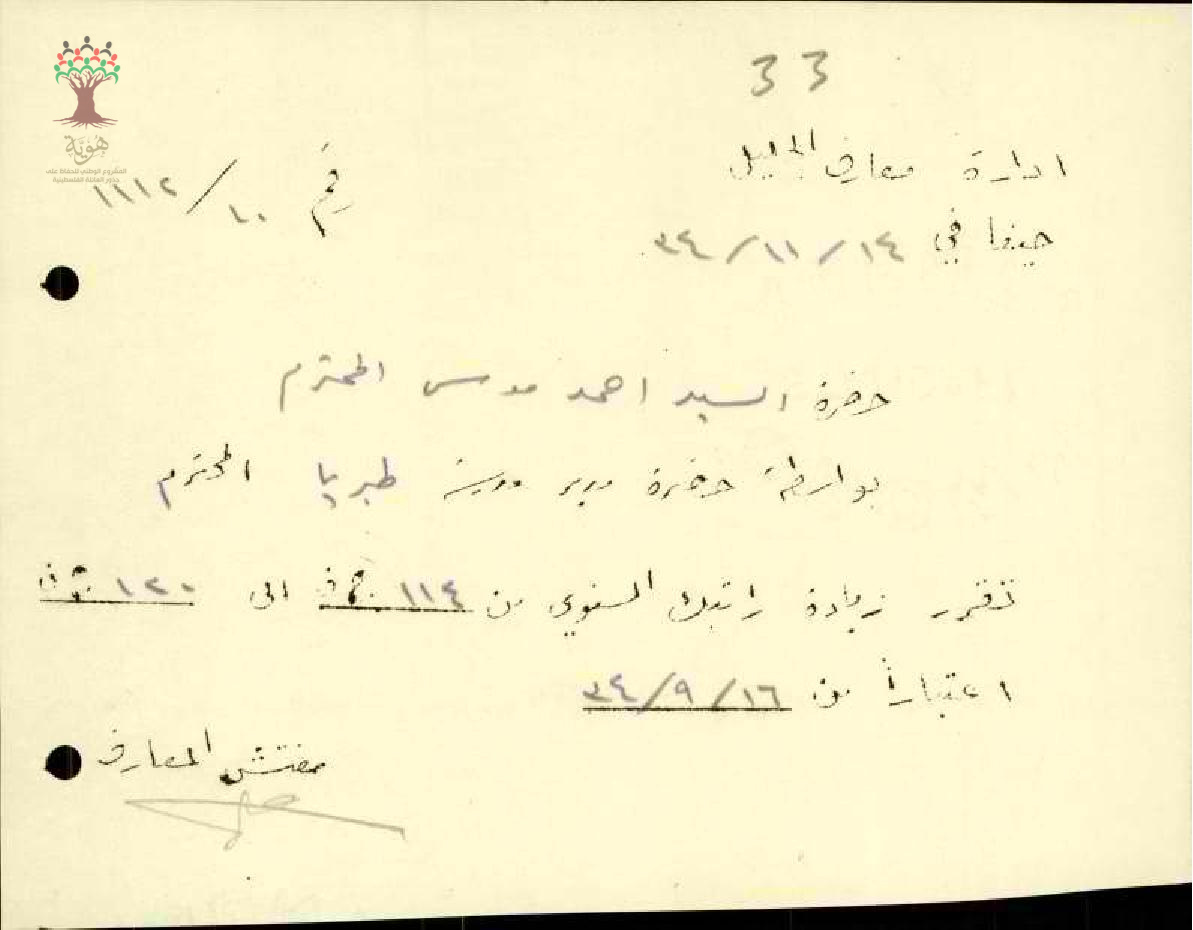 33
ادارة معارف الجليل
رقم ١٠/١١١٢
حيفا في ١٤/١١/٣٤
حضرة السيد احمد موسى المحترم
بواسطة حضرة مدير مدرسة طبريا المحترم
تقرر زيادة راتبك السنوي من ١١٤ ج ف الى ١٢٠ ج ف
اعتباراً من ١٦/٩/٣٤
مفتش المعارف
هُوِيَّة
المشروع الوطني للحفاظ على
جذور العائلة الفلسطينية